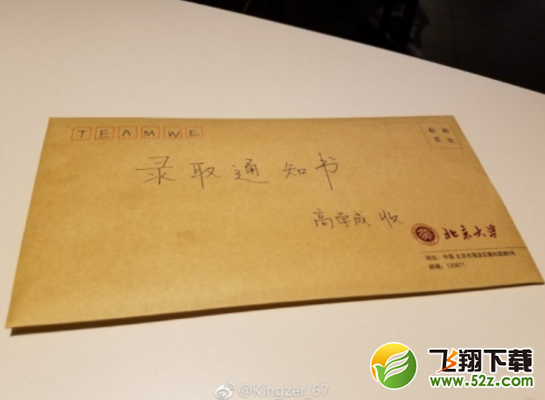 TEAMWE
贴邮
票处
录取通知书
高平成 收
北京大学
地址：中国 北京市海淀区颐和园路5号
邮编：100871
@Kingzer_67
飞翔下载
www.52z.com